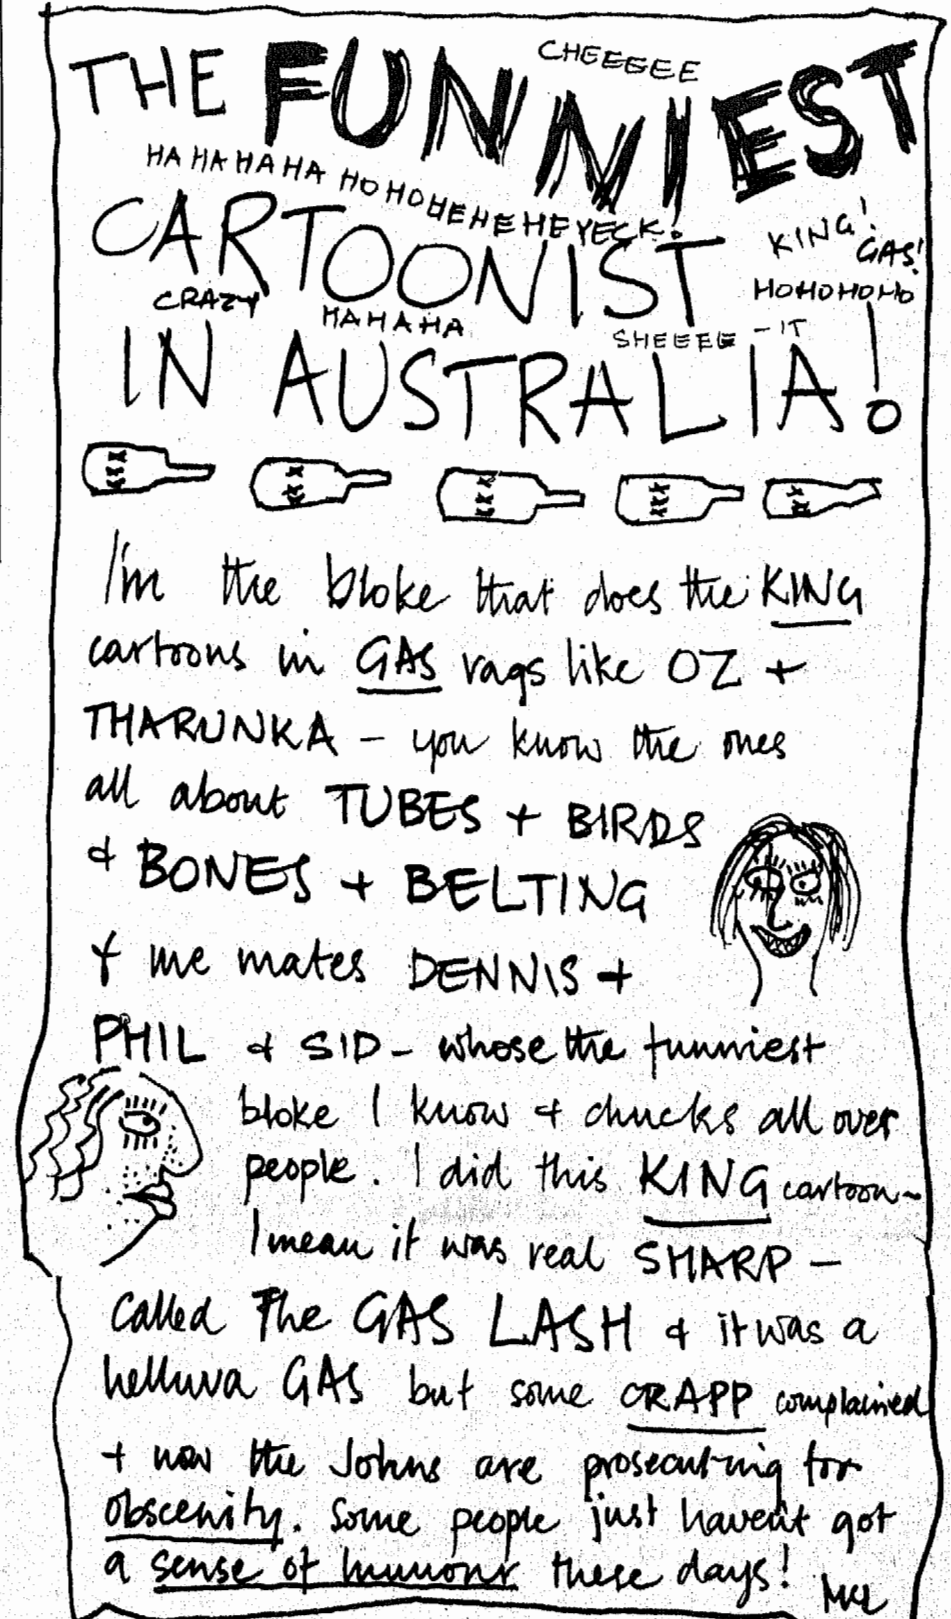 CHEEEEE
THE FUNNIEST
HA HA HA HA HO HO HO HEHEHEHEYECK!
CARTOONIST
KING! GAS!
HOHOHOHO
CRAZY
HAHAHA
SHEEEE-IT
IN AUSTRALIA!
XXX XXX XXX XXX XXX
I'm the bloke that does the KING
cartoons in GAS rags like OZ +
THARUNKA - you know the ones
all about TUBES + BIRDS
& BONES + BELTING
+ me mates DENNIS +
PHIL & SID - whose the funniest
bloke I know & chucks all over
people. I did this KING cartoon -
I mean it was real SHARP -
called The GAS LASH & it was a
helluva GAS but some CRAPP complained
+ now the Johns are prosecuting for
obscenity. Some people just haven't got
a sense of humour these days!